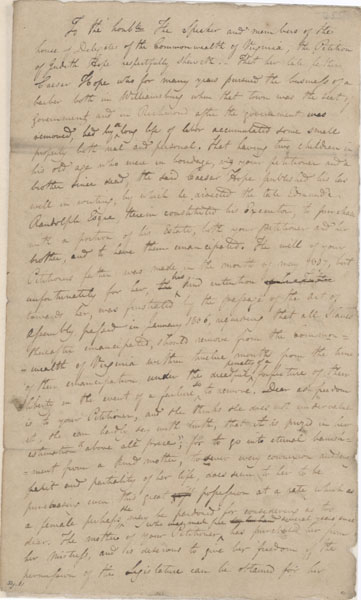 To the honble. The Speaker and members of the
house of Delegates of the Commonwealth of Virginia, the Petition
of Judith Hope respectfully sheweth. That her late father
Caesar Hope who for many years pursued the business of a
barber both in Williamsburg when that town was the seat of
government and in Richmond after the government was
removed, had by a long life of labor accumulated some small
property both real and personal. That having two children in
his old age who were in bondage, viz. your petitioner and a
brother since dead, the said Caesar Hope published his last
will in writing, by which he directed the late Edmund
Randolph Esqre. therein constituted his Executor, to purchase
with a portion of his Estate, both your Petitioner and her
brother, and to have them emancipated. The will of your
Petitioners father was made in the month of may 1807, but
unfortunately for her, this kind intention
towards her, was frustrated by the passage of the act of
Assembly passed in January 1806, requiring that all slaves
thereafter emancipated, should remove from the common-
wealth of Virginia within twelve months from the time
of their emancipation under the penalty of a forfeiture of their
liberty in the event of a failure to remove. Dear as freedom
is to your Petitioner, and she thinks she does not undervalue
it, she can
"above all price"; for to go into eternal banish-
ment from a kind mother, to whom
habit and partiality of her life, does seem to her to be
purchasing even this great at a rate which as
a female perhaps she may be pardoned for considering as too
dear. The mother of your Petitioner, who was made free several years since
has purchased her from
her mistress, and he is desirous to give her freedom if the
permission of the Legislature can be obtained for her